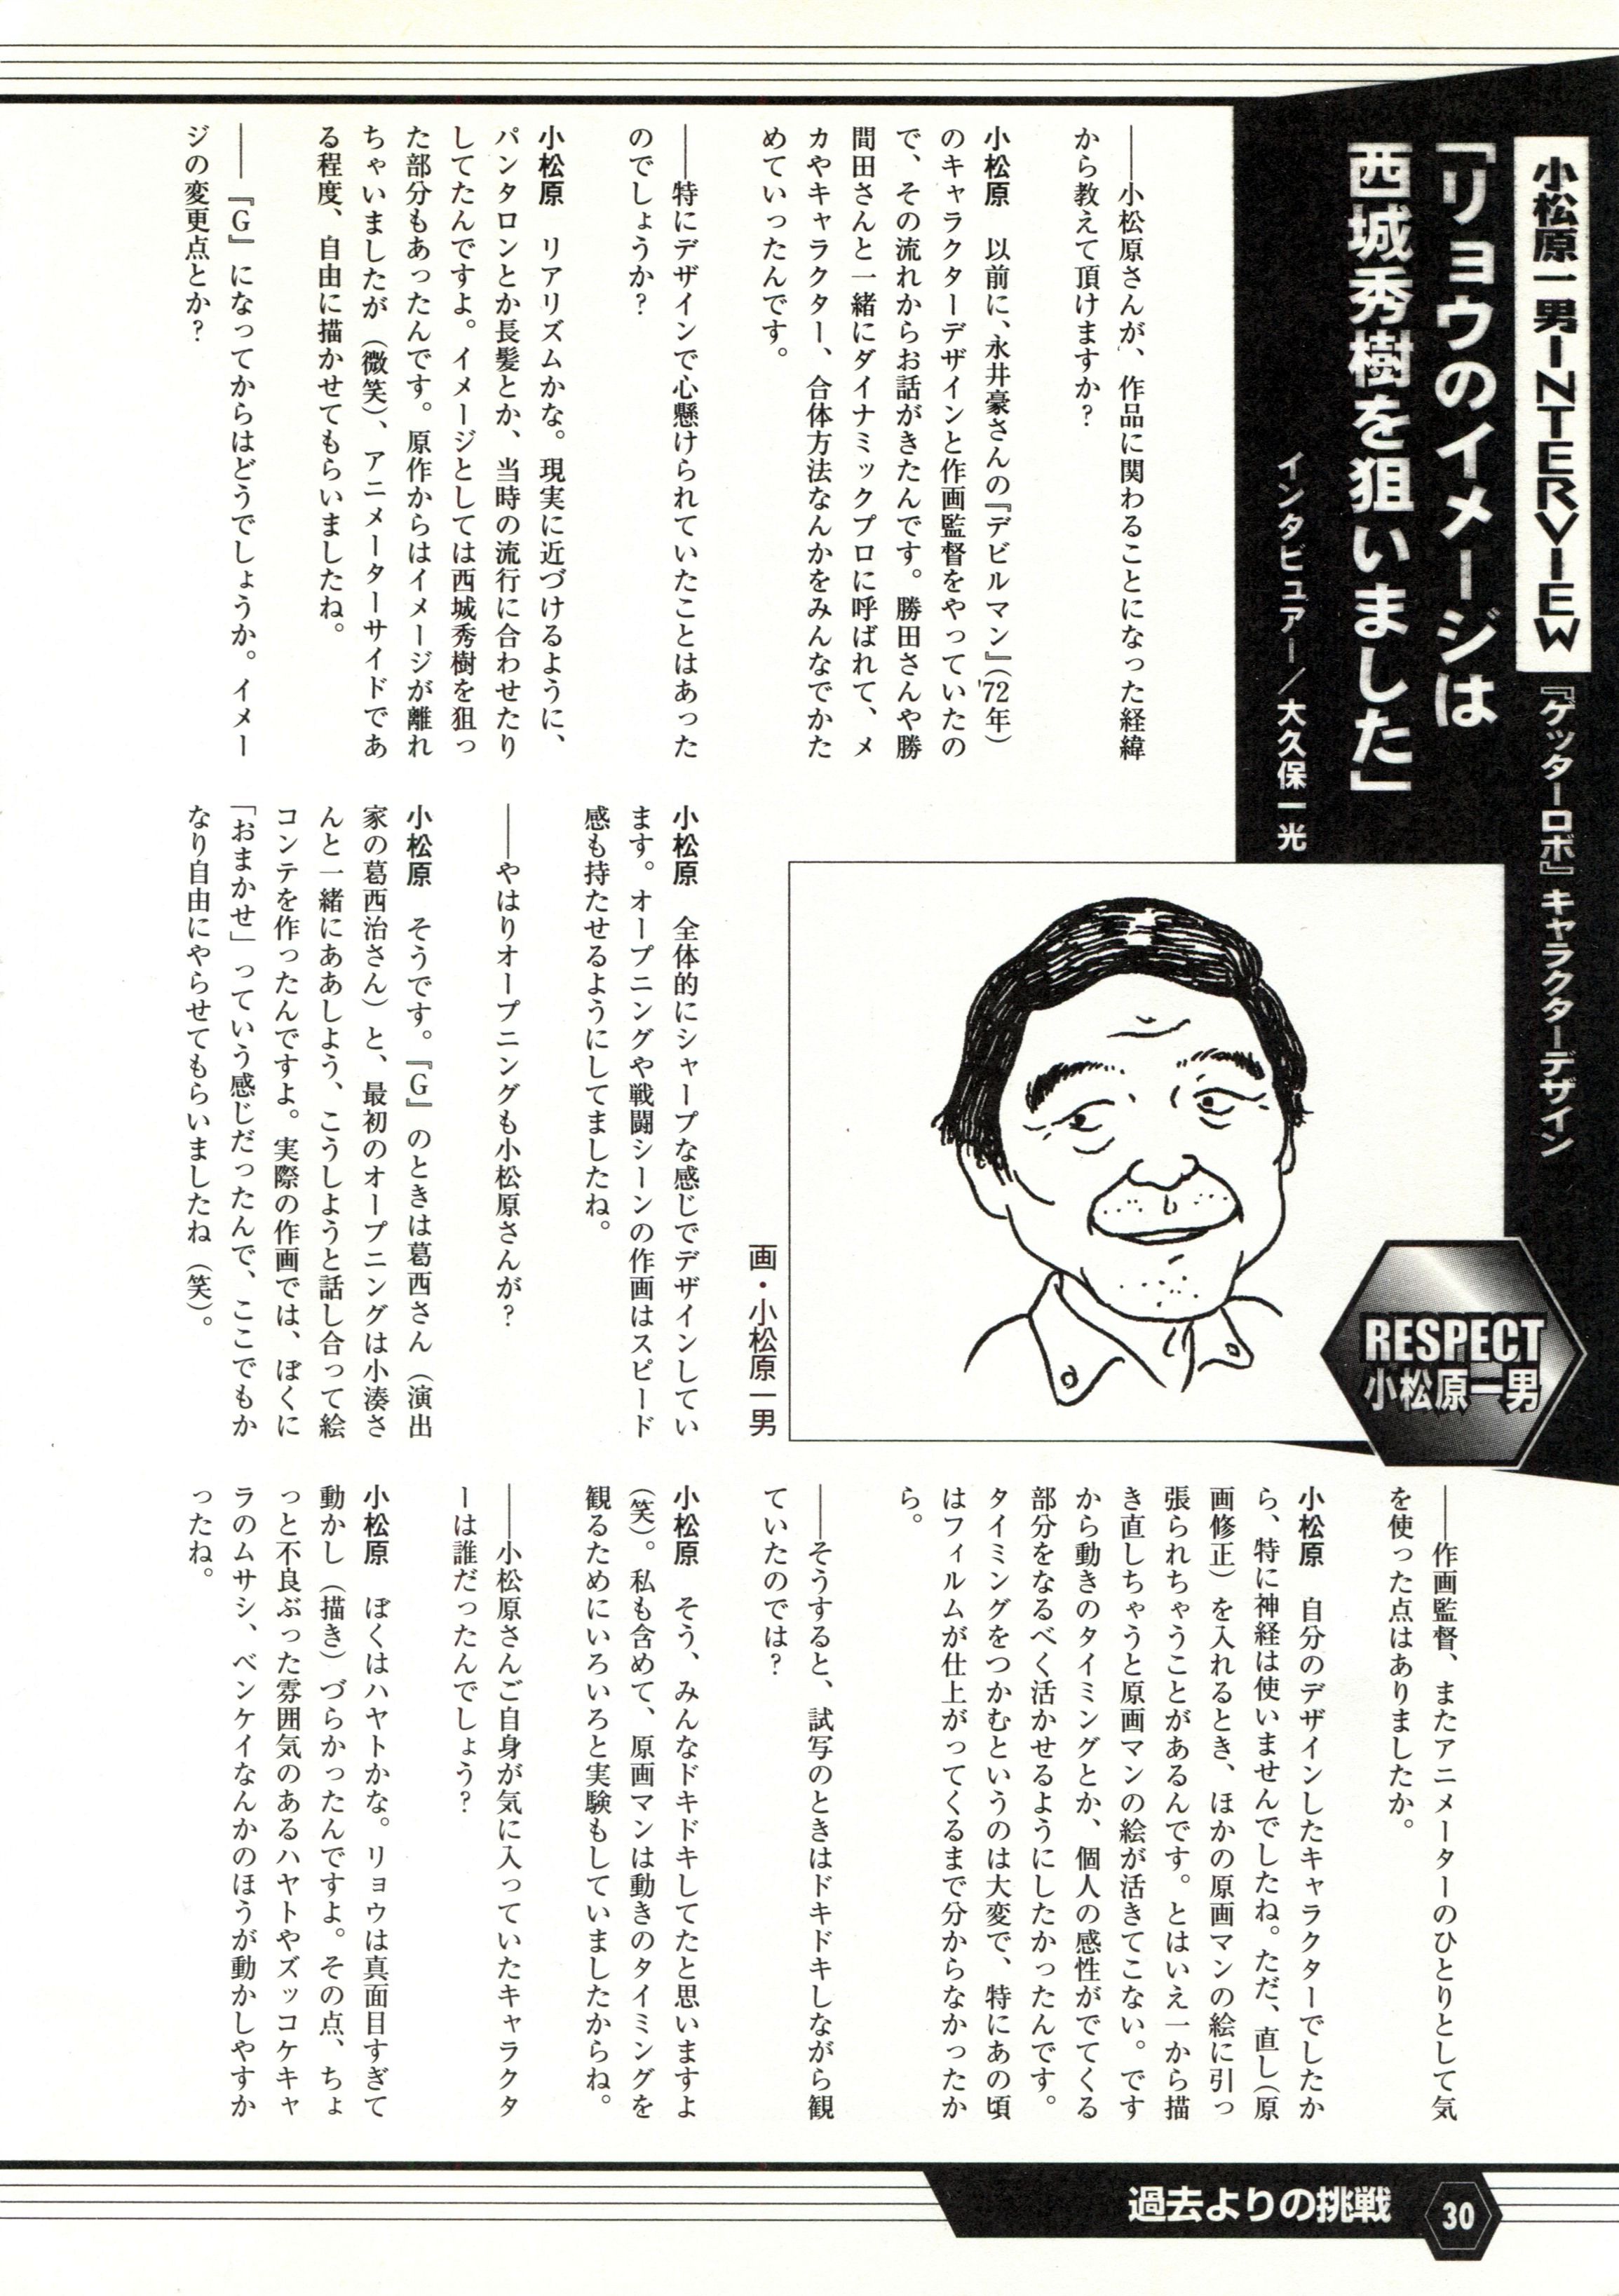 小松原一男INTERVIEW
『ゲッターロボ』キャラクターデザイン
「リョウのイメージは
西城秀樹を狙いました」
インタビュアー／大久保一光
RESPECT
小松原一男
画・小松原一男
――小松原さんが、作品に関わることになった経緯
から教えて頂けますか？
小松原　以前に、永井豪さんの『デビルマン』（'72年）
のキャラクターデザインと作画監督をやっていたの
で、その流れからお話がきたんです。勝田さんや勝
間田さんと一緒にダイナミックプロに呼ばれて、メ
カやキャラクター、合体方法なんかをみんなでかた
めていったんです。
――特にデザインで心懸けられていたことはあった
のでしょうか？
小松原　リアリズムかな。現実に近づけるように、
パンタロンとか長髪とか、当時の流行に合わせたり
してたんですよ。イメージとしては西城秀樹を狙っ
た部分もあったんです。原作からはイメージが離れ
ちゃいましたが（微笑）、アニメーターサイドであ
る程度、自由に描かせてもらいましたね。
――『G』になってからはどうでしょうか。イメー
ジの変更点とか？
小松原　全体的にシャープな感じでデザインしてい
ます。オープニングや戦闘シーンの作画はスピード
感も持たせるようにしてましたね。
――やはりオープニングも小松原さんが？
小松原　そうです。『G』のときは葛西さん（演出
家の葛西治さん）と、最初のオープニングは小湊さ
んと一緒にああしよう、こうしようと話し合って絵
コンテを作ったんですよ。実際の作画では、ぼくに
「おまかせ」っていう感じだったんで、ここでもか
なり自由にやらせてもらいましたね（笑）。
――作画監督、またアニメーターのひとりとして気
を使った点はありましたか。
小松原　自分のデザインしたキャラクターでしたか
ら、特に神経は使いませんでしたね。ただ、直し（原
画修正）を入れるとき、ほかの原画マンの絵に引っ
張られちゃうことがあるんです。とはいえ一から描
き直しちゃうと原画マンの絵が活きてこない。です
から動きのタイミングとか、個人の感性がでてくる
部分をなるべく活かせるようにしたかったんです。
タイミングをつかむというのは大変で、特にあの頃
はフィルムが仕上がってくるまで分からなかったか
ら。
――そうすると、試写のときはドキドキしながら観
ていたのでは？
小松原　そう、みんなドキドキしてたと思いますよ
（笑）。私も含めて、原画マンは動きのタイミングを
観るためにいろいろと実験もしていましたからね。
――小松原さんご自身が気に入っていたキャラクタ
ーは誰だったんでしょう？
小松原　ぼくはハヤトかな。リョウは真面目すぎて
動かし（描き）づらかったんですよ。その点、ちょ
っと不良ぶった雰囲気のあるハヤトやズッコケキャ
ラのムサシ、ベンケイなんかのほうが動かしやすか
ったね。
過去よりの挑戦
30